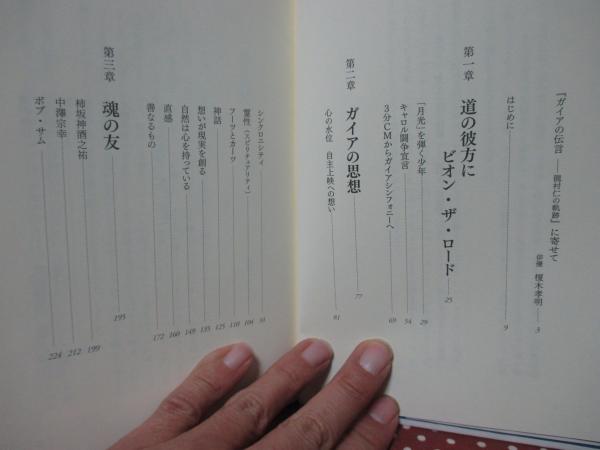 『ガイアの伝言――龍村仁の軌跡』に寄せて
俳優 榎木孝明 3
はじめに 9
第一章 道の彼方に
ビオン・ザ・ロード 25
「月光」を弾く少年 29
キャロル闘争宣言 54
3分CMからガイアシンフォニーへ 69
第二章 ガイアの思想 77
心の水位 自主上映への想い 81
シンクロニシティ
霊性(スピリチュアリティ) 104
フーツとカーツ 110
神話 125
想いが現実を創る 135
自然は心を持っている 149
直感 160
善なるもの 172
第三章 魂の友 195
柿坂神酒之祐 199
中澤宗幸 212
ボブ・サム 224